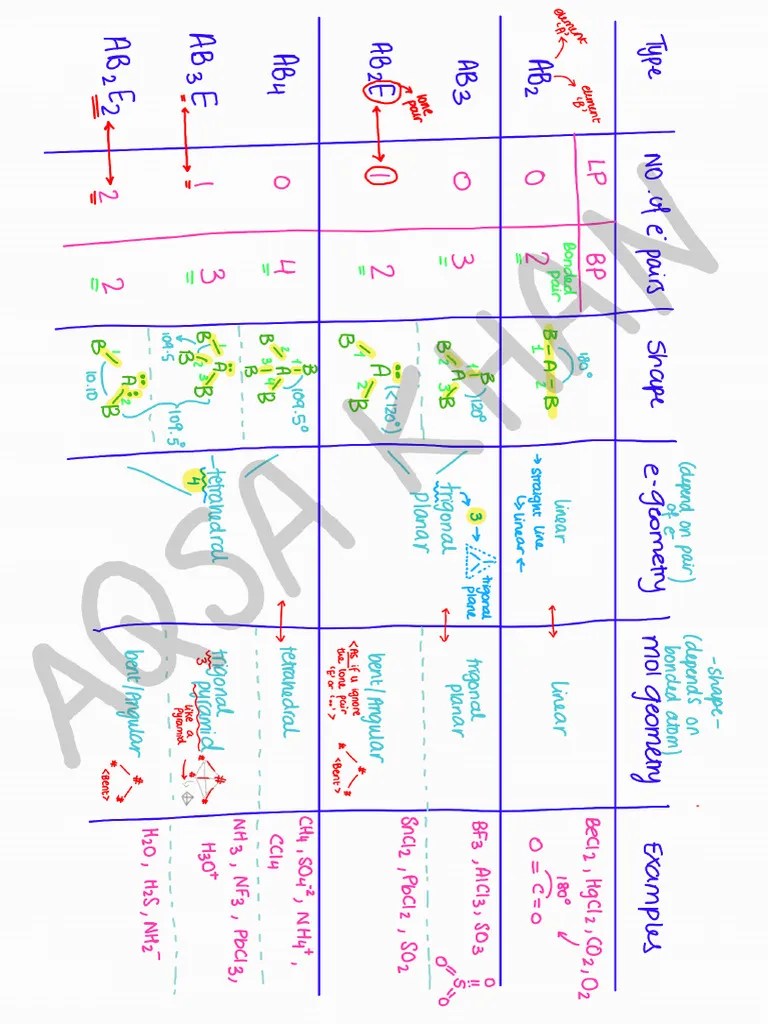 Type
NO. of e⁻ pairs
Shape
(depend on pair)
of e⁻
e-geometry
-shape-
(depends on
bonded atom)
mol geometry
Examples
LP
BP
Bonded
pair
element
'A'
element
'B'
AB2
0
2
180°
B-A-B
1 2
linear
→ straight line
↳ linear ←
linear
BeCl2, HgCl2, CO2, O2
180°
O=C=O
AB3
0
3
B B
A
B
1 2 3
120°
trigonal
planar
3 →
trigonal
plane
trigonal
planar
BF3, AlCl3, SO3
O
O=S=O
AB2E
lone
pair
1
2
A
B B
1 2
(<120°)
bent/Angular
<As if u ignore
the lone pair
'E' or '..'>
<Bent>
SnCl2, PbCl2, SO2
AB4
0
4
B
B A
B B
1 2 3 4
109.5°
tetrahedral
4
tetrahedral
CH4, SO4⁻², NH4⁺,
CCl4
AB3E
1
3
A
B B B
1 2 3
109.5
109.5°
trigonal
3
pyramid
like a
pyramid
NH3, NF3, PbCl3,
H3O⁺
AB2E2
2
2
A
B B
1 2
10.10
bent/Angular
<Bent>
H2O, H2S, NH2⁻
AQSA KHAN